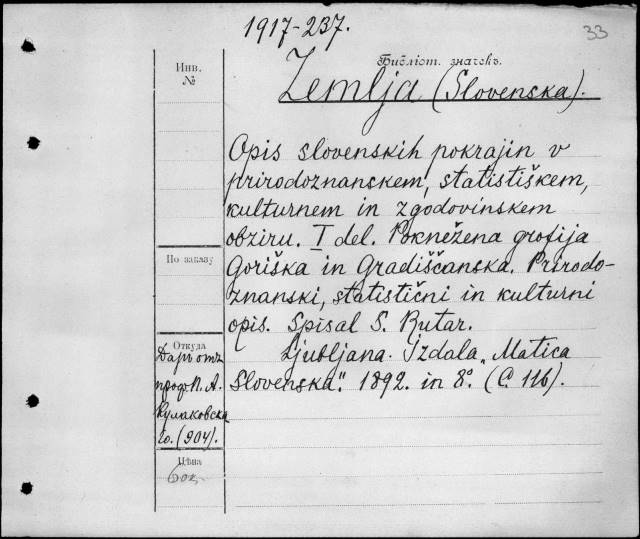 1917-237.
33
Инв.
№
Библіот. значекъ.
Zemlja (Slovenska).
Opis slovenskih pokrajin v
prirodoznanskem, statistiškem,
kulturnem in zgodovinskem
obziru. I del. Poknežena grofija
Goriška in Gradiščanska. Prirodo-
znanski, statistični in kulturni
opis. Spisal S. Rutar.
Ljubljana. Izdala „Matica
Slovenska". 1892. in 8°. (C. 116).
По заказу
Откуда
Даръ отъ
проф. П. А.
Кулаковска
го. (904).
Цѣна